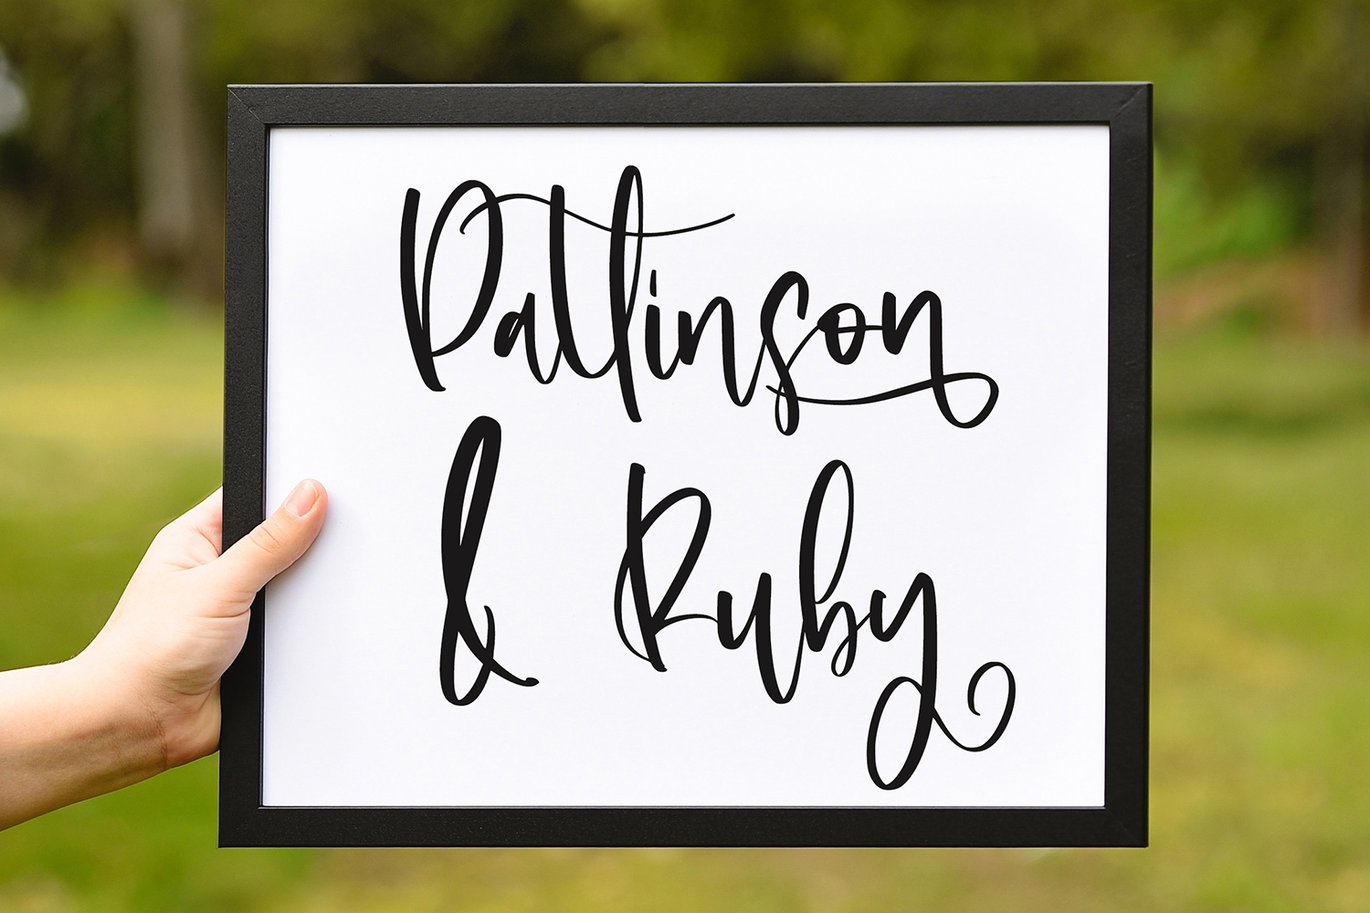 Pattinson
& Ruby